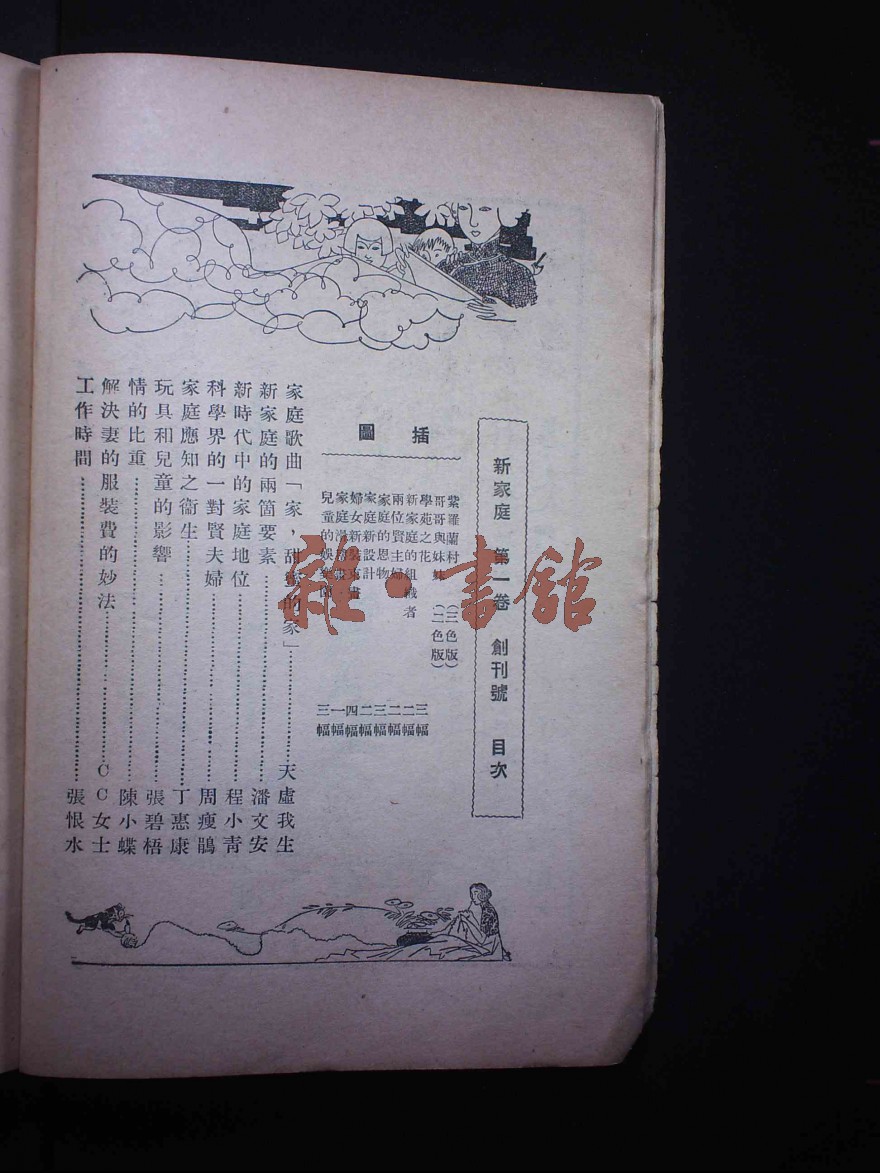 新家庭 第一卷 創刊號 目次
插圖
紫羅蘭村（三色版）
哥哥與妹妹（二色版）
學苑之花 三幅
新家庭的組織者 二幅
兩位賢主婦 二幅
家庭的恩物 三幅
家庭新設計 二幅
婦女新裝 四幅
家庭 一幅
兒童的娛樂 三幅
家庭歌曲「家，甜蜜的家」……天虛我生
新家庭的兩箇要素……潘文安
新時代中的家庭地位……程小青
科學界的一對賢夫婦……周瘦鵑
家庭應知之衞生……丁惠康
玩具和兒童的影響……張碧梧
情的比重……陳小蝶
解決妻的服裝費的妙法……CC女士
工作時間……張恨水
雜·書館